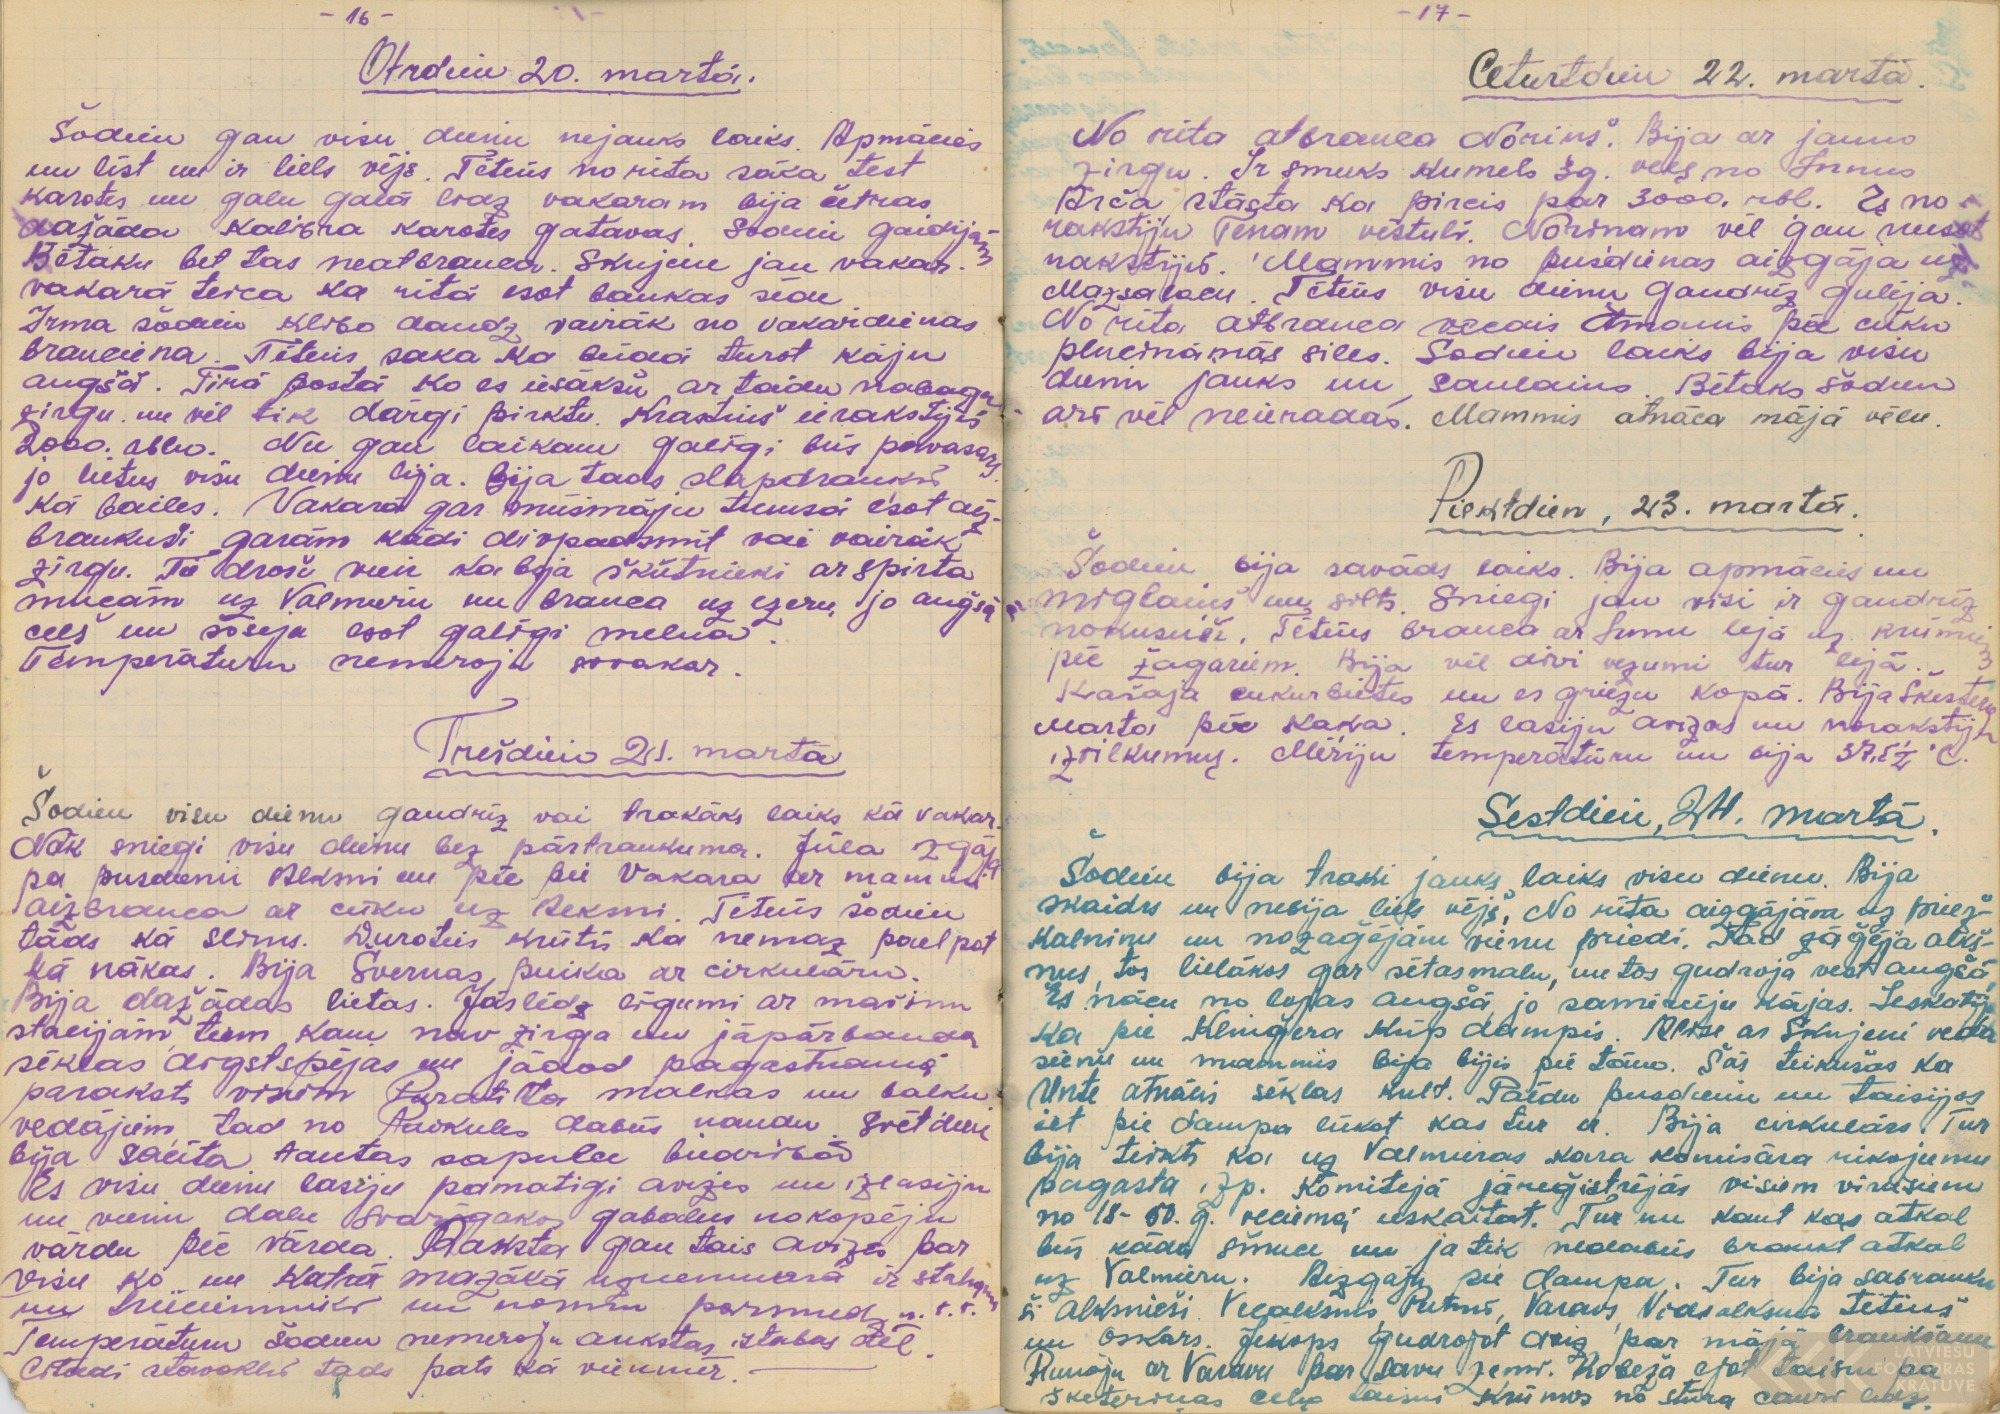 - 16 -
Otrdien 20. martā.
Šodien gan visu dienu nejauks laiks. Apmācies
un līst un ir liels vējš. Tētiņš no rīta sāka test
karotes un galu galā līdz vakaram bija četras
dažāda kalibra karotes gatavas. Šodien gaidijām
Bētaku bet tas neatbrauca. Skujene jau vakar
vakarā teica ka rītā esot baukas
Irma šodien klibo daudz vairāk no vakardienas
brauciena. Tētiņš saka ka turot kāju
augšā. Tīrā posta ko es iesākšu ar tādu nabagu
zirgu un vēl tik dārgi pirktu. Krastiņš ierakstijis
2000. rbļ. Nu gan laikam galīgi būs pavasars
jo lietus visu dienu lija. Bija tads slapdraņķis
kā bailes. Vakarā gar mūsmāju tumsā esot aiz-
braukuši garām kādi divpadsmit vai vairāk
zirgu. Tie droši vien ka bija šķūtnieki ar spirta
mucām uz Valmieru un brauca uz ezeru jo augšā
ceļš un šoseja esot galīgi melna.
Temperāturu nemeroju šovakar.
Trešdien 21. martā
Šodien visu dienu gandrīz vai trakāks laiks kā vakar.
Nāk sniegi visu dienu bez pārtraukuma. Jūla
pa pusdienu Aleksni un pēc pie vakara ar mammu
aizbrauca ar cūku uz Aleksni. Tētiņš šodien
tāds kā slims. Duroties krūtīs ka nemaz paelpot
kā nākas. Bija Švernas puika ar cirkulāru.
Bija dažādas lietas. Jāslēdz līgumi ar mašīnu
stacijām, tiem kam nav zirga un jāpārbauda
sēklas dīgstspējas un jādod pagastnamā
paraksts visiem malkas un balku
vedājiem, tad no dabūs naudu. Svētdien
bija saukta tautas sapulce biedrībā
Es visu dienu lasiju pamatigi avizes un izlasiju
un vienu daļu svarīgakos gabalus nokopēju
vārdu pēc vārda. Raksta gan tais avizēs par
visu ko un katrā mazākā uzņēmumā ir stahanovieši
un trieciennieki un normu pārsniedz u.t.t.
Temperāturu šodien nemeroju aukstas istabas dēļ.
Citadi stavoklis tads pats kā vienmēr.
- 17 -
Ceturtdien 22. martā.
No rīta atbrauca Noriņš. Bija ar jauno
zirgu. Ir smuks kumeļš 3g. vecs no Innus
Ārča stāsta ka pircis par 3000. rbl. Es no-
rakstiju Tenam vēstuli. Noriņam vēl gan neesot
rakstijis. Mammiņ no pusdienas aizgāja uz
Mazsalacu. Tētiņš visu dienu gandrīz gulēja.
No rīta atbrauca vecais Āmanis pēc cūku
plucināmās siles. Šodien laiks bija visu
dienu jauks un saulains. Bētaks šodien
arī vēl neieradās. Mammiņ atnāca mājā vēlu.
Piektdien, 23. martā.
Šodien bija savāds laiks. Bija apmācies un
miglains un silts. Sniegi jau visi ir gandrīz
nokusuši. Tētiņš brauca ar Irmu lejā uz krūmiem
pēc žagariem. Bija vēl divi vezumi tur lejā.
Kasija cukurbietes un es griezu kopā. Bija Šķesteru
Marta pēc kaķa. Es lasiju avizes un norakstiju
izvilkumus. Mēriju temperātūru un bija 37,5½ °C.
Sestdien, 24. martā.
Šodien bija traki jauks laiks visu dienu. Bija
skaidrs un nebija liels vējš. No rīta aizgājām uz Priež-
kalninu un nozāģējām vienu priedi. Tad zāģēja alkš-
ņus, tos lielākos gar sētasmalu, un tos gudroja vest augšā.
Es nācu no lejas augšā jo samirkuju kājas. Ieskatijos
ka pie Kliņģera kūp dampis. Alise ar Skujeni veda
sienu un mammiņ bija bijis pie tām. Šās teikušas ka
Unte atnāks sēklas kult. Paēdu pusdienu un taisijos
iet pie dampa lūkot kas tur ir. Bija cirkulārs. Tur
bija teikts ka uz Valmieras kara komisāra rīkojumu
pagasta izp. komitejā jāreģistrējas visiem vīriešiem
no 18-50. g. vecumā ieskaitot. Tur nu kaut kas atkal
būs kāda šmuce un ja tik nedabūs braukt atkal
uz Valmieru. Aizgāju pie dampa. Tur bija sabraukuši
alksnieši Vecalksnis Putniņ, Varavs, Vidsalksna tētiņš
un Oskars. Jēkops gudrojot drīz par mājā braukšanu
Runāju ar Varavu par savu zemi. Robeža ejot taisni pa
šķesteriņas ceļa taisni krūmos no stūra cauri līdz
LATVIEŠU
FOLKLORAS
KRĀTUVE